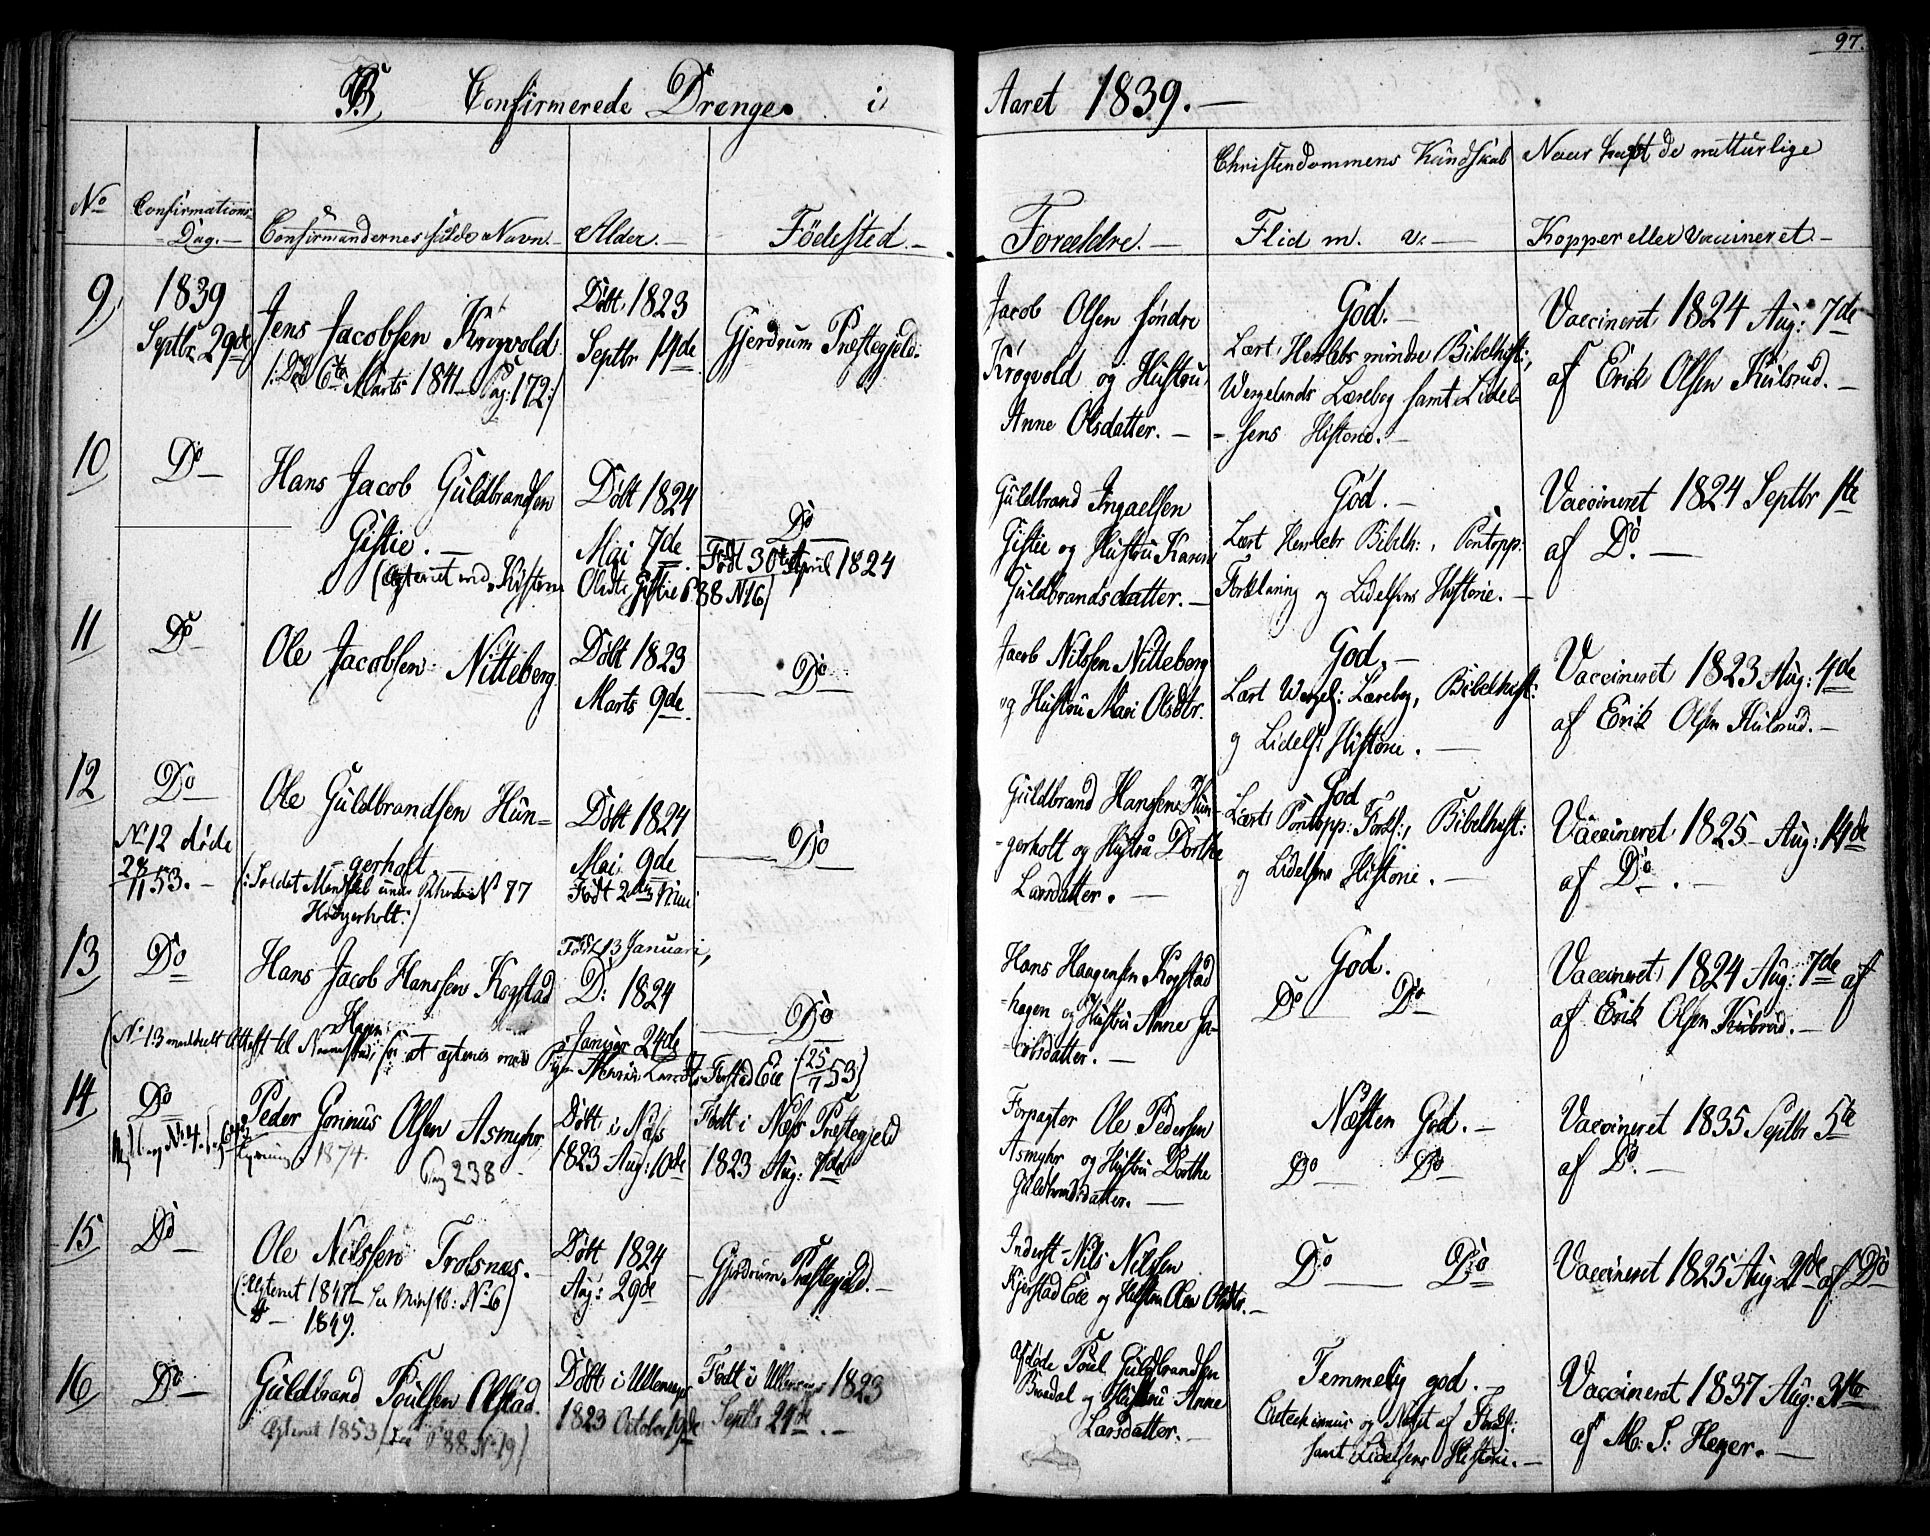 97.
B, Confirmerede Drenge i Aaret 1839.—
No
Confirmations-
Dag.—
Confirmandernes fulde Navn.—
Alder.—
Fødested.—
Forældre.—
Christendommens Kundskab
Flid m. v.—
Naar havt de naturlige
Kopper eller Vaccineret.—
9,
1839
Septbr 29de
Jens Jacobsen Krogvold
/: Død 6te Marts 1841 Pag: 172:/
Døbt 1823
Septbr 14de
Gjerdrum Præstegjeld.
Jacob Olsen søndre
Krogvold og Hustru
Anne Olsdatter.—
God.—
Lært Herslebs mindre Bibelhist:,
Wergelands Lærebog samt Lidel-
sens Historie.—
Vaccineret 1824 Aug: 7de
af Erik Olsen Kulsrud.—
10
Do—
Hans Jacob Guldbrandsen
Gistie.—
(Ægteviet med Kistine Olsdtr Gistie P 88 N 16)
Døbt 1824
Mai 7de.
Do
Født 30te April 1824
Guldbrand Ingaelsen
Gistie og Hustru Karen
Guldbrandsdatter.—
God.—
Lært Herslebs Bibelh:, Pontopp:
Forklaring og Lidelsens Historie.—
Vaccineret 1824 Septbr 1te
af Do.—
11
Do
Ole Jacobsen Nitteberg
Døbt 1823
Marts 9de.
Do
Jacob Nilssen Nitteberg
og Hustru Mari Olsdtr.
God.—
Lært Wergel: Lærebog, Bibelhist:
og Lidels: Historie.—
Vaccineret 1823 Aug: 4de
af Erik Olsen Kulsrud.—
12
Do
No 12 døde
53.—
Ole Guldbrandsen Hun=
=gerholt
(: Soldat No 77
Hungerholt:)
Døbt 1824
Mai 9de
Født 2den
Do
Guldbrand Hanssen Hun-
-gerholt og Hustru Dorthe
Larsdatter.
God
Lært Pontopp: Forkl:, Bibelhist:
og Lidelsens Historie.—
Vaccineret 1825 Aug: 14de
af Do.—
13
Do
Hans Jacob Hanssen Kogstad
Hagen
(No 13 meddelt Attest til Nannestad, for at ægtevies med
Født 13 Januari,
D: 1824
Januar 24de
Do
Hans Haagensen Kogstad
hagen og Hustru Anne Ja-
cobsdatter.—
God.
Do Do
Vaccineret 1824 Aug: 7de af
af Erik Olsen Kulsrud.—
14
Do
Peder Olsen Asmyhr
1874.
Pag 238
Døbt i Næss
1823 Aug: 10de
Født i Næss Præstegjeld
1823 Aug: 7de
Forpagter Ole Pedersen
Asmyhr og Hustru Dorthe
Guldbrandsdatter.—
Næsten God.—
Do Do
Vaccineret 1835 Septbr 5te
af Do.—
15
Do
Ole Nilssen Trolsnæs.—
(: Ægteviet 1847 No 6)
1849.
Døbt 1824
Aug: 29de
Gjerdrum Præstegjeld.—
Inderst Nils Nilssen
Kjerstad Eie og Hustru Olsdtr.—
Do Do
Vaccineret 1825 Aug 21de af Do
16
Do—
Guldbrand Poulsen Olstad.
Ægteviet 1853 (see P 88 No 19)
Døbt i Ullensager
1823 October 19de
Født i Ullensager 1823
Septbr 24de.—
Afdøde Poul Guldbrandsen
og Hustru Anne
Larsdatter.—
Temmelig god.
Catechismus og Noget af Forkl:
samt Lidelsens Historie.—
Vaccineret 1837 Aug: 31te
af M: S: Heyer.—